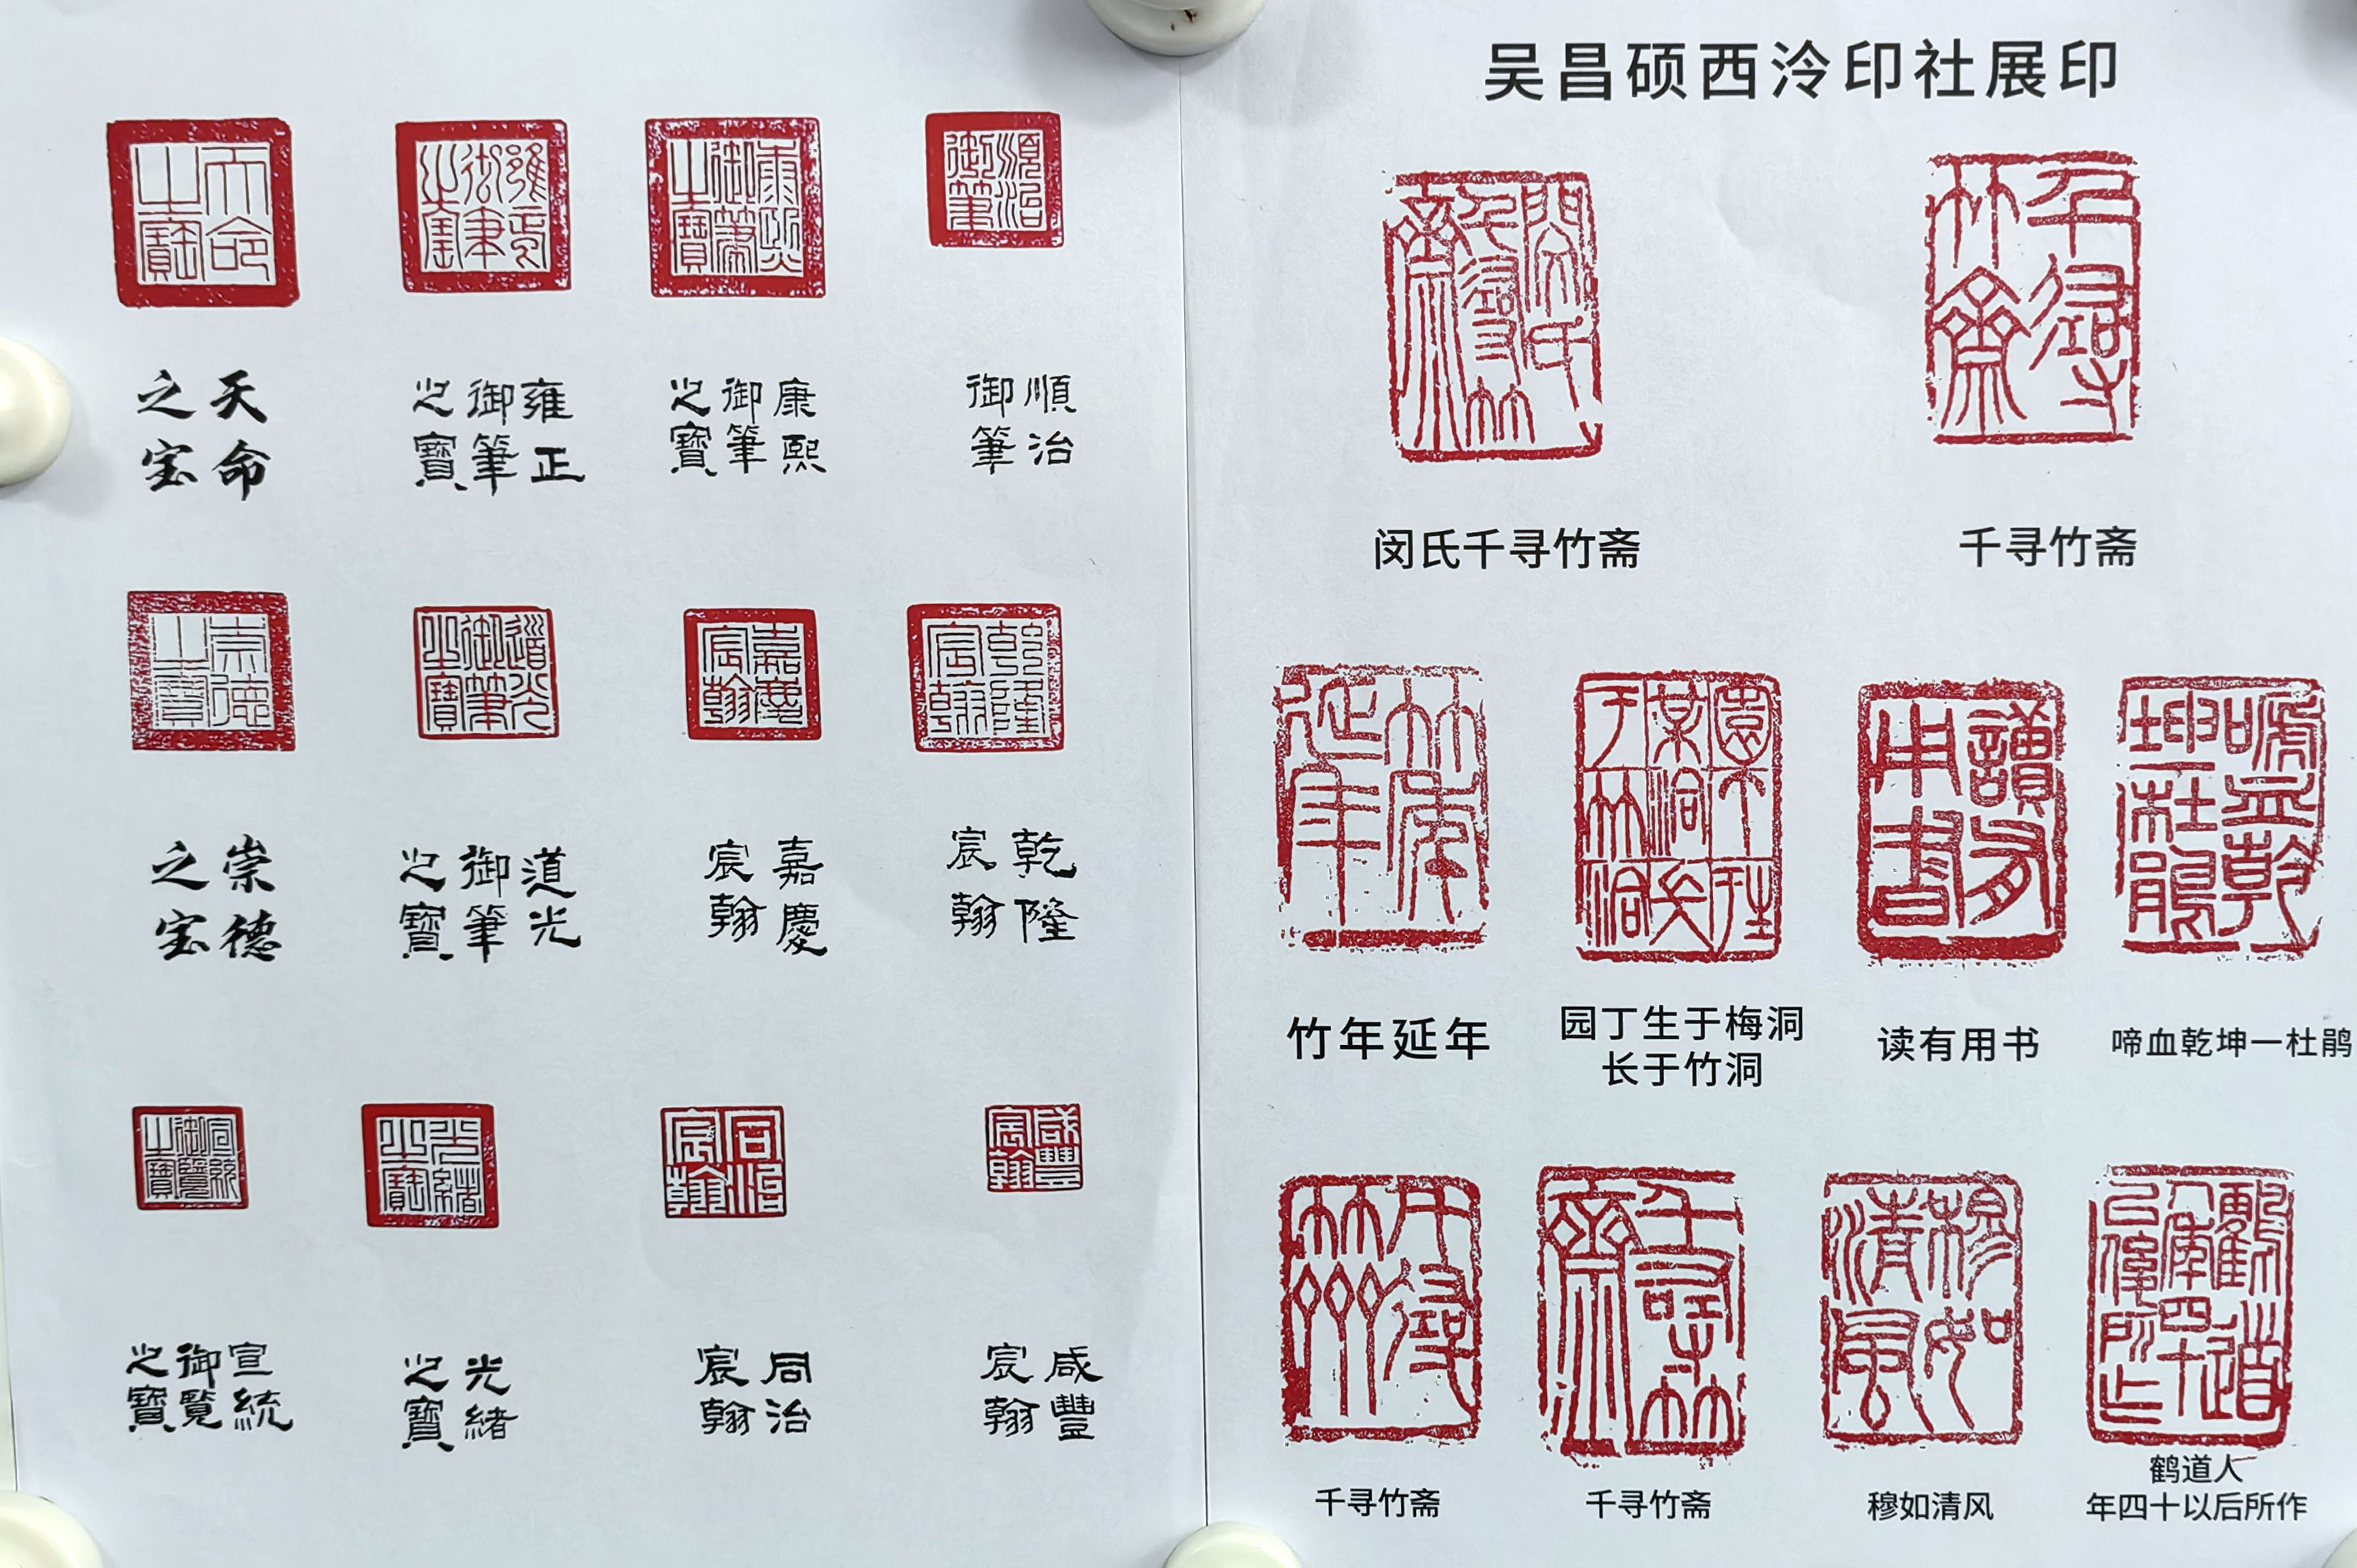 天命
之宝
雍正
御筆
之寶
康熙
御筆
之寶
順治
御筆
崇德
之宝
道光
御筆
之寶
嘉慶
宸翰
乾隆
宸翰
宣統
御覽
之寶
光緒
之寶
同治
宸翰
咸豐
宸翰
吴昌硕西泠印社展印
闵氏千寻竹斋
千寻竹斋
竹年延年
园丁生于梅洞
长于竹洞
读有用书
啼血乾坤一杜鹃
千寻竹斋
千寻竹斋
穆如清风
鹤道人
年四十以后所作